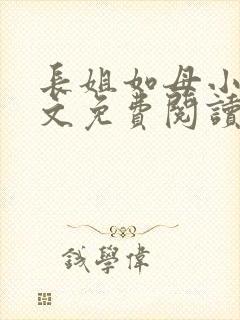 長姐如母小
文免費閱讀
錢學偉